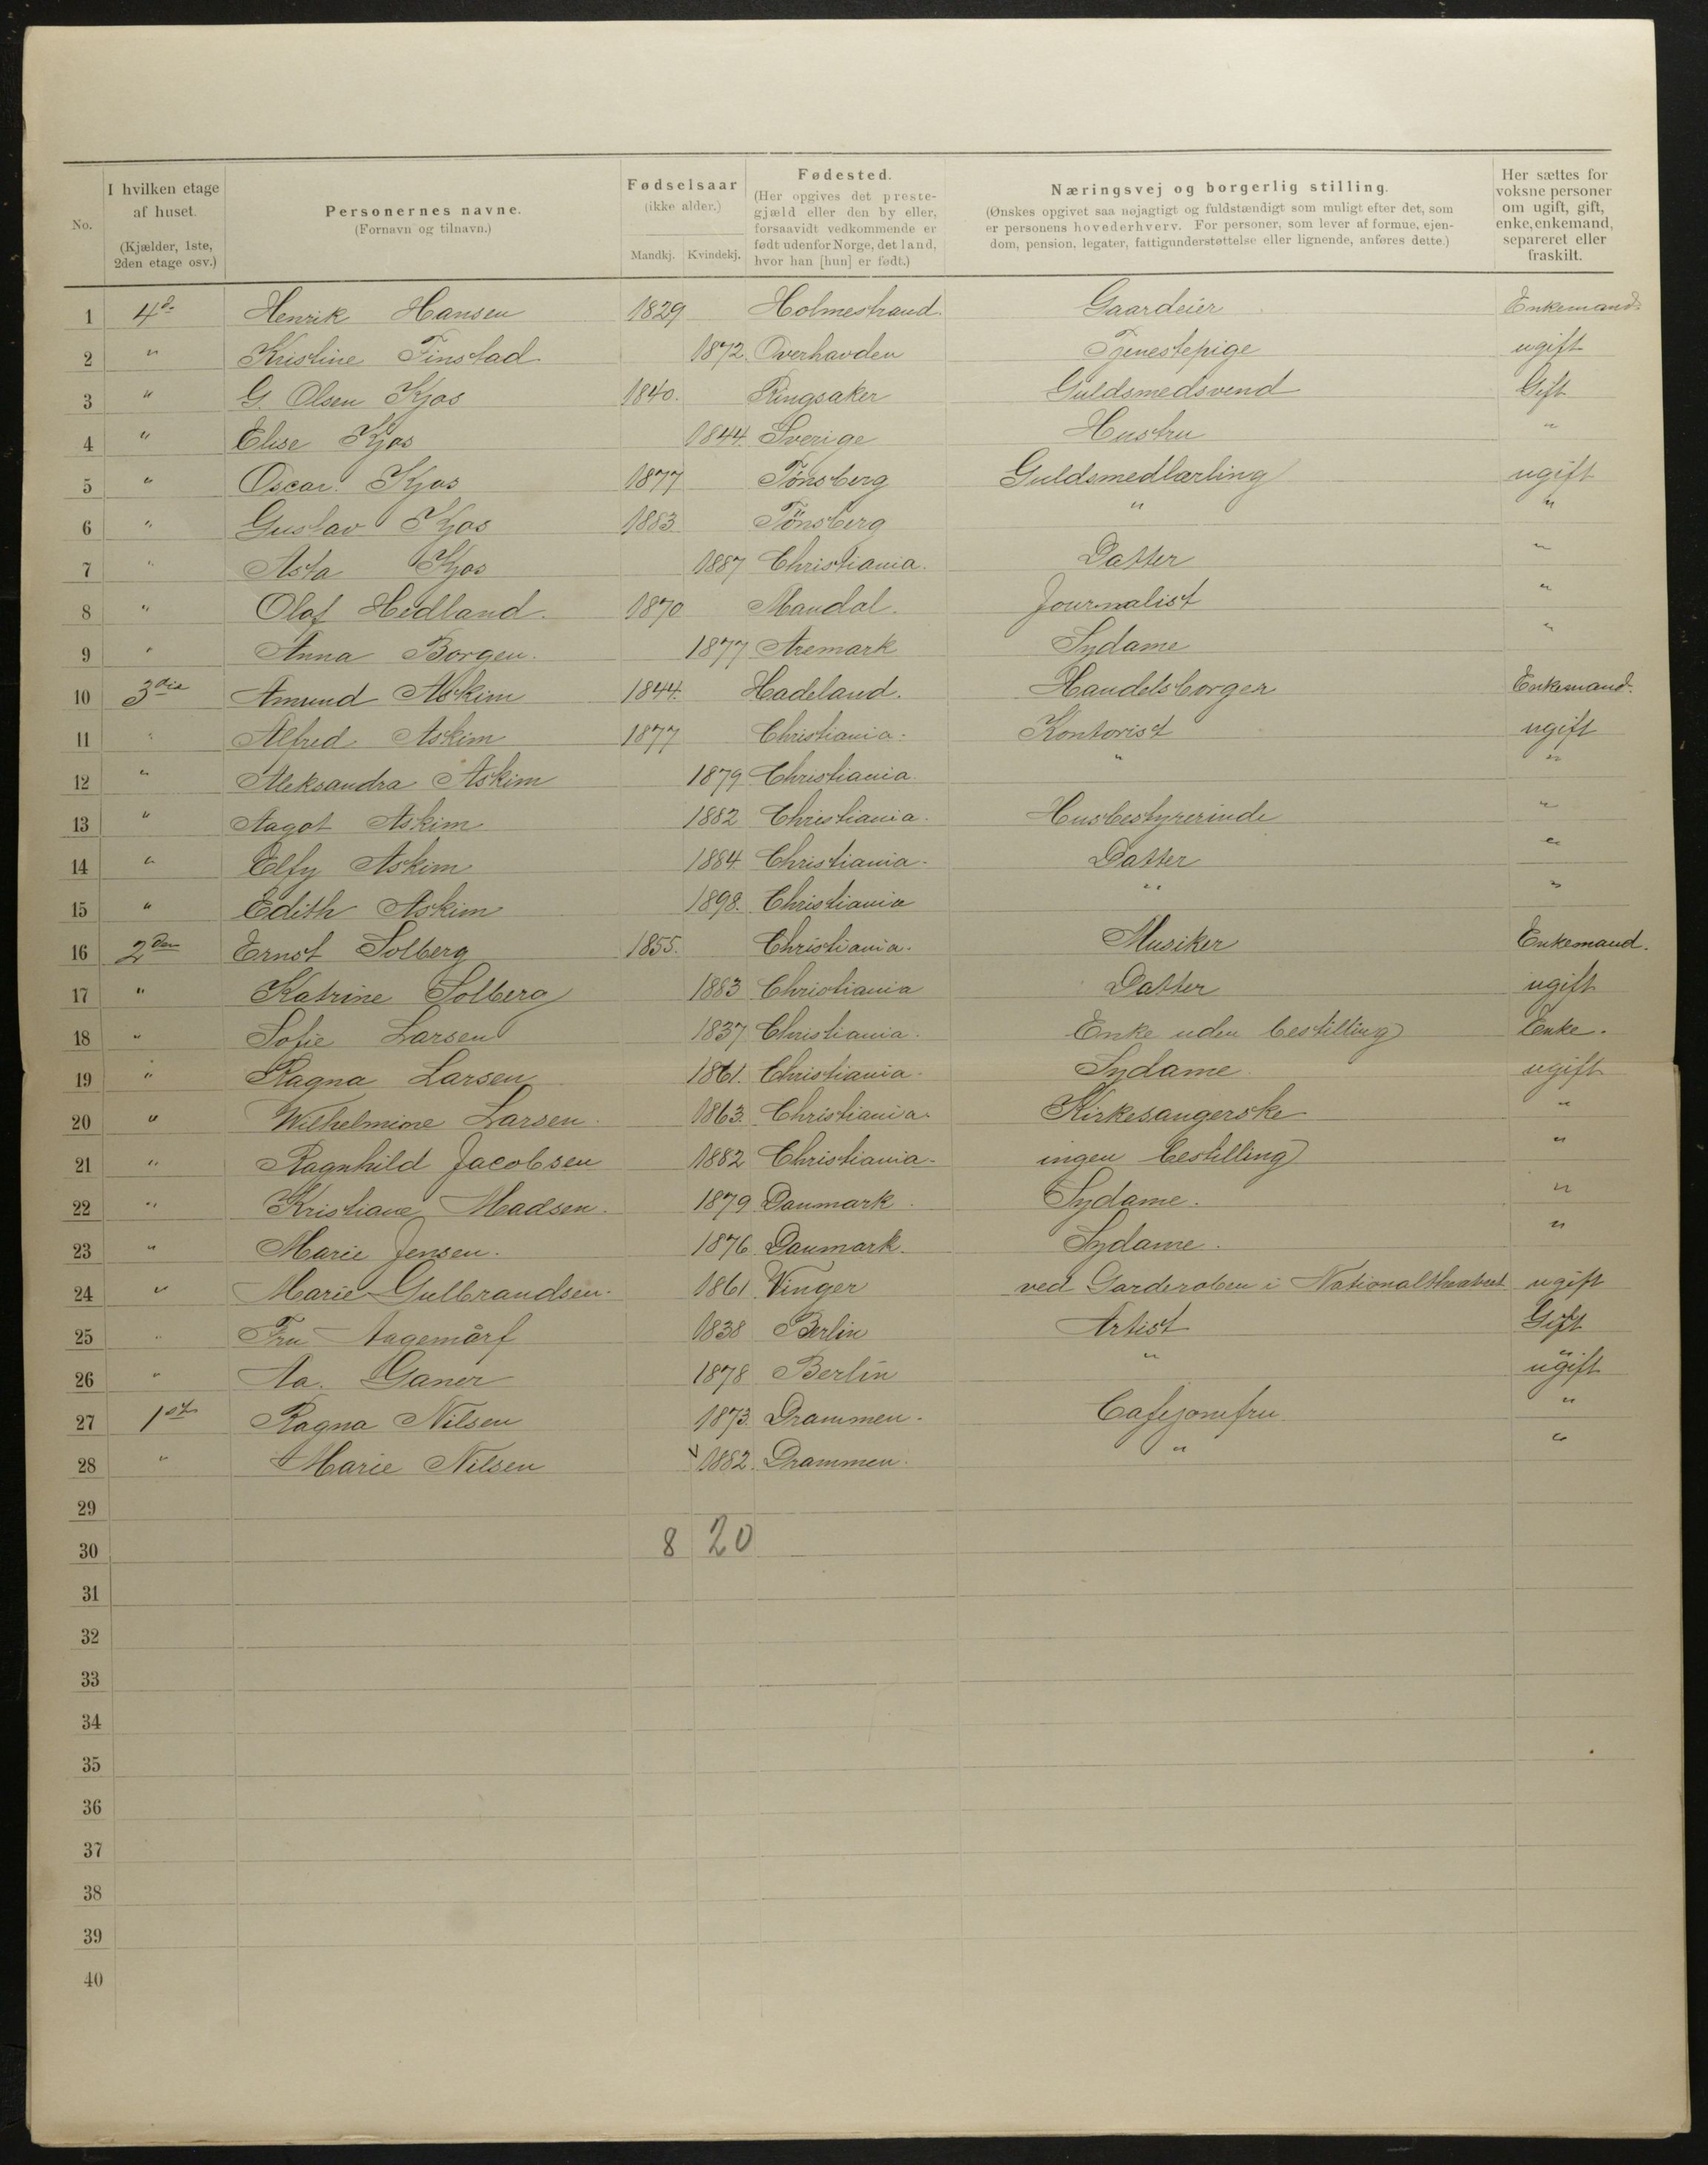 No. I hvilken etage af huset. (Kjælder, 1ste, 2den etage osv.) Personernes navne. (Fornavn og tilnavn.) Fødselsaar (ikke alder.) Mandkj. Kvindekj. Fødested. (Her opgives det prestegjæld eller den by eller, forsaavidt vedkommende er født udenfor Norge, det land, hvor han [hun] er født.) Næringsvej og borgerlig stilling. (Ønskes opgivet saa nøjagtigt og fuldstændigt som muligt efter det, som er personens hovederhverv. For personer, som lever af formue, ejendom, pension, legater, fattigunderstøttelse eller lignende, anføres dette.) Her sættes for voksne personer om ugift, gift, enke, enkemand, separeret eller fraskilt.
1 4de Henrik Hansen 1829 Holmestrand. Gaardeier Enkemand.
2 " Kristine Finstad 1872. Overhavden Tjenestepige ugift
3 " G. Olsen Kjos 1840. Ringsaker Guldsmedsvend Gift
4 " Elise Kjos 1844. Sverige Hustru "
5 " Oscar. Kjos 1877 Tønsberg Guldsmedlærling ugift
6 " Gustav Kjos 1883 Tönsberg " "
7 " Asta Kjos 1887 Christiania. Datter "
8 " Olaf Hedland. 1870 Mandal. Journalist "
9 " Anna Borgen. 1877 Aremark Sydame "
10 3die Amund Askim 1844. Hadeland. Handelsborger Enkemand.
11 " Alfred Askim 1877 Christiania. Kontorist ugift
12 " Aleksandra Askim 1879 Christiania. " "
13 " Aagot Askim 1882 Christiania. Husbestyrerinde "
14 " Elfy Askim 1884. Christiania. Datter "
15 " Edith Askim 1898. Christiania " "
16 2den Ernst Solberg 1855. Christiania. Musiker Enkemand.
17 " Katrine Solberg 1883 Christiania Datter ugift
18 " Sofie Larsen 1837 Christiania. Enke uden bestilling Enke.
19 " Ragna Larsen 1861. Christiania. Sydame ugift
20 " Wilhelmine Larsen. 1863. Christiania. Kirkesangerske "
21 " Ragnhild Jacobsen 1882 Christiania. ingen bestilling "
22 " Kristiane Madsen. 1879 Danmark. Sydame. "
23 " Marie Jensen. 1876 Danmark. Sydame. "
24 " Marie Gulbrandsen. 1861 Vinger ved Garderoben i Nationaltheatret ugift
25 " Fru Aagemårf 1838 Berlin Artist Gift
26 " Aa. Ganer 1878 Berlin " ugift
27 1ste Ragna Nilsen 1873. Drammen. Cafejomfru "
28 " Marie Nilsen 1882. Drammen. " "
29
30 8 20
31
32
33
34
35
36
37
38
39
40